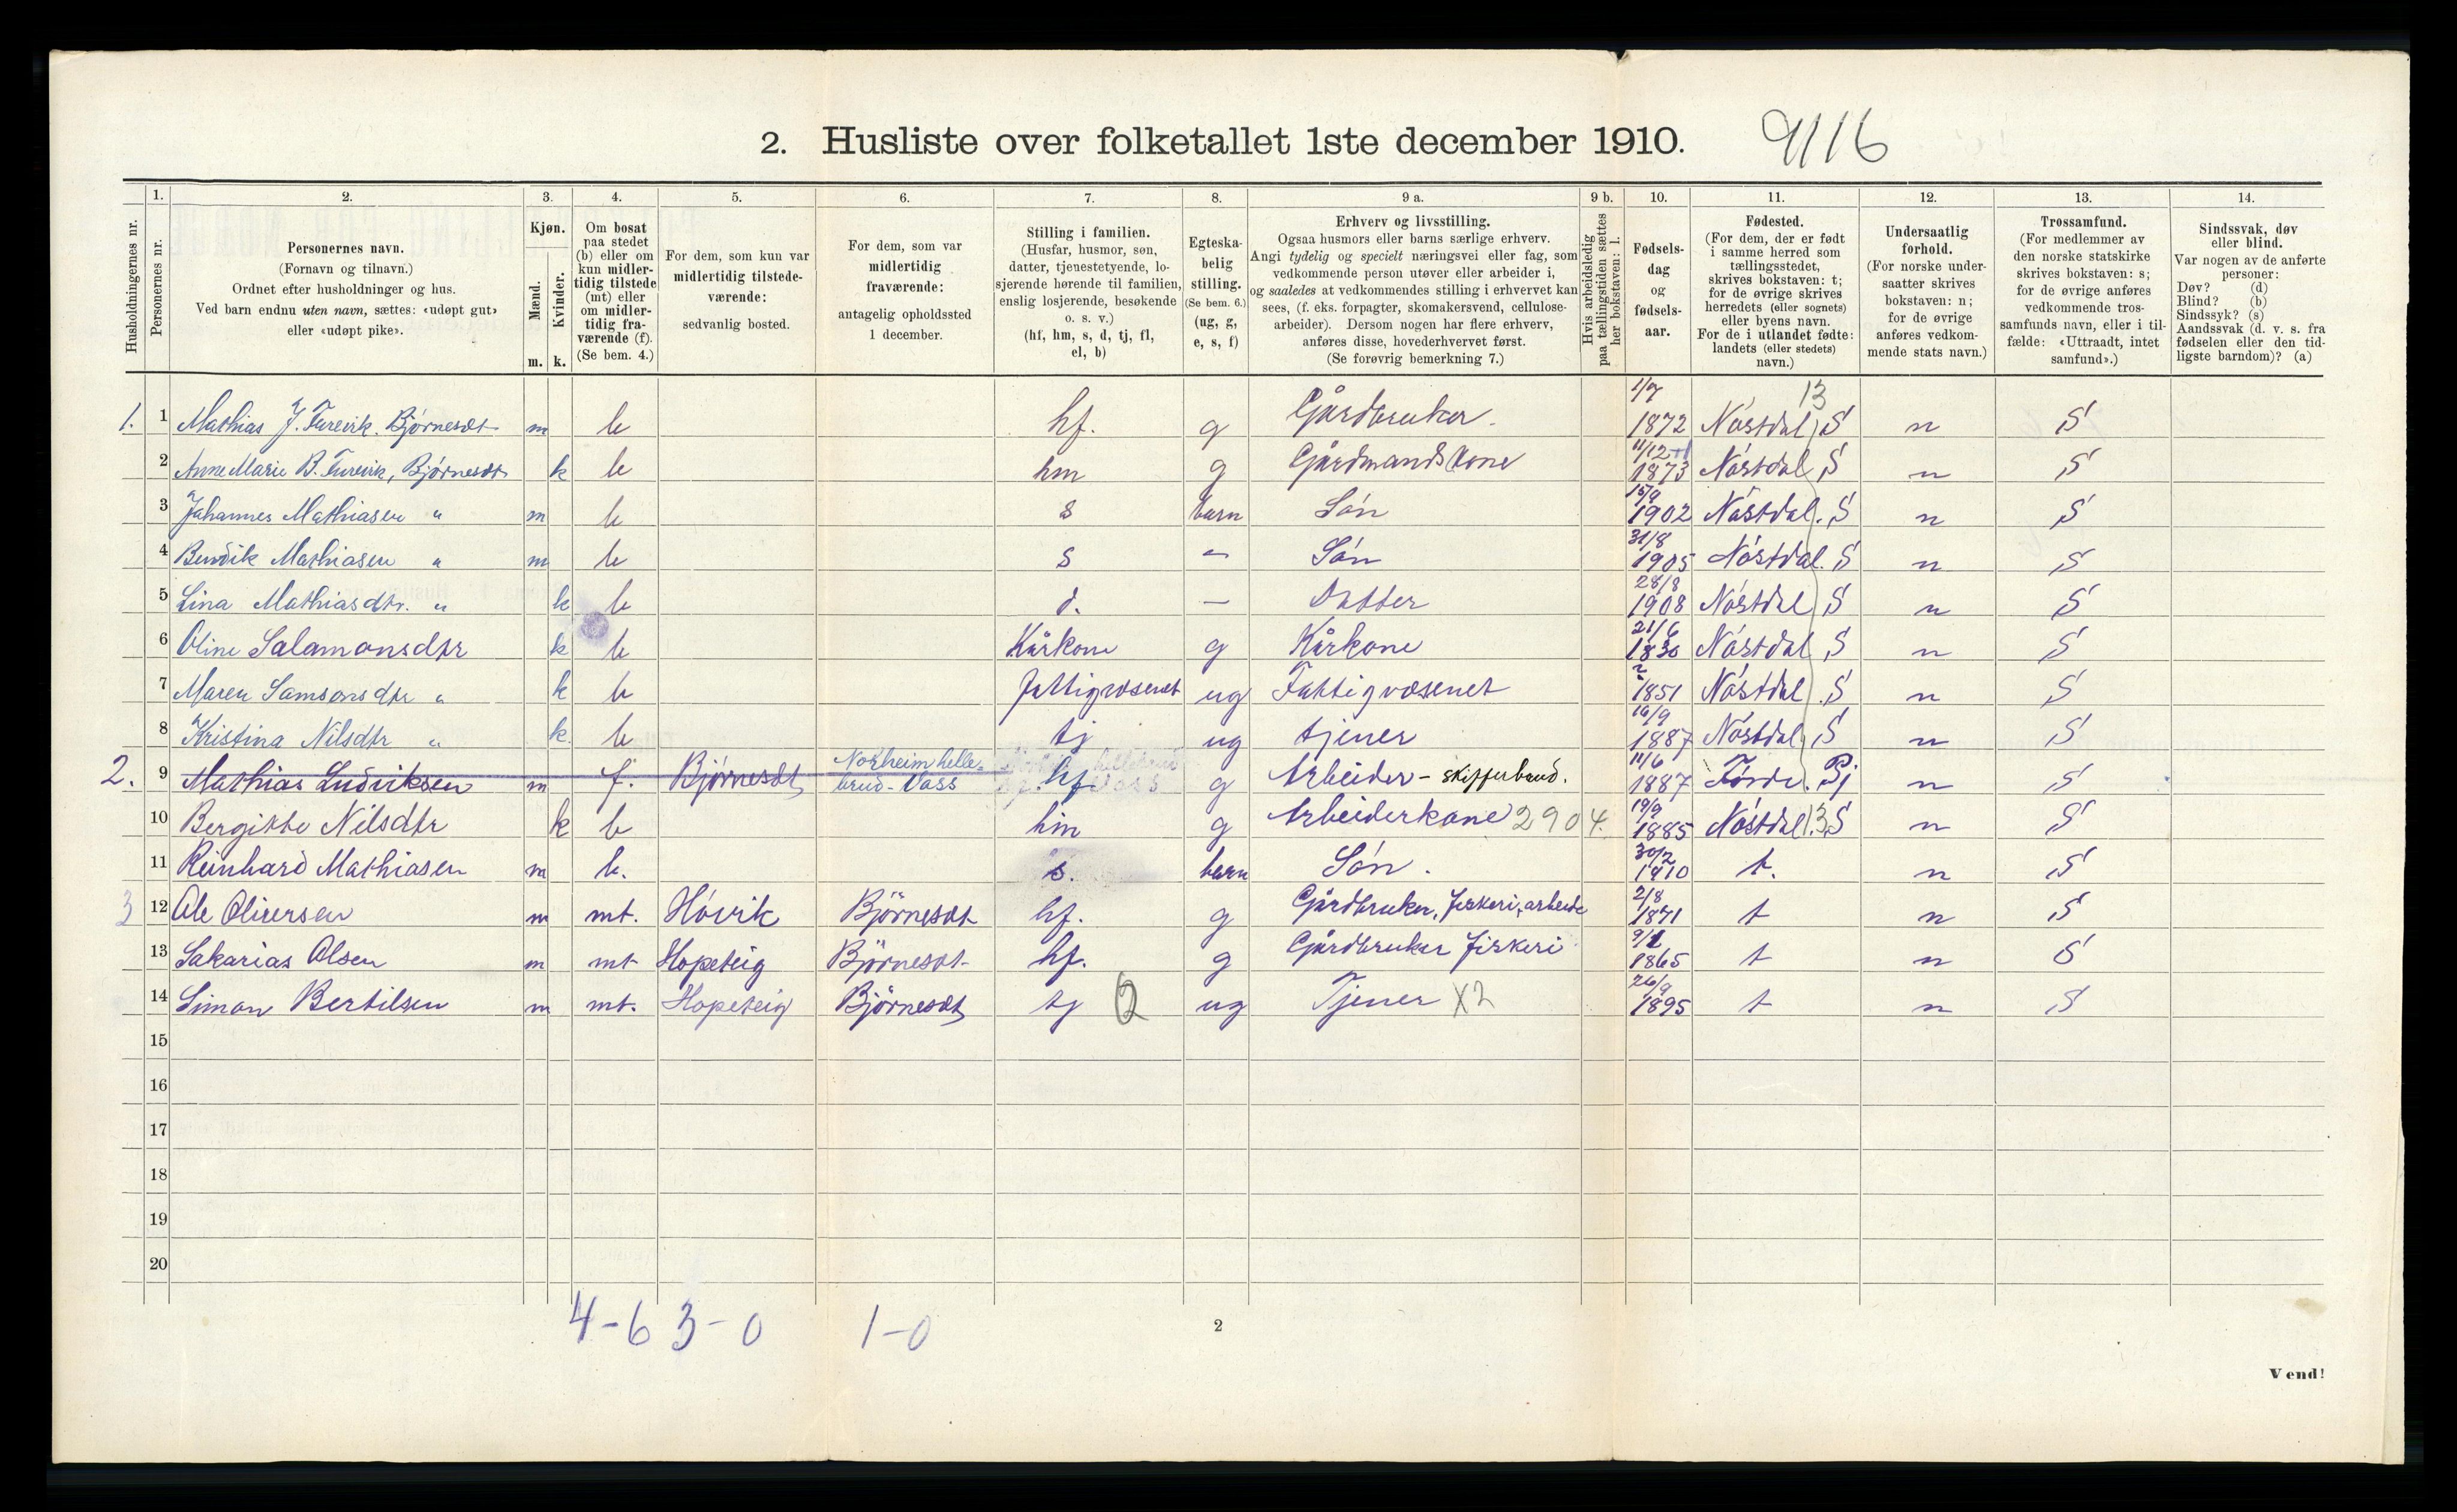 2. Husliste over folketallet 1ste december 1910. 9116
Husholdningernes nr.
1. Personernes nr.
2. Personernes navn.
(Fornavn og tilnavn.)
Ordnet efter husholdninger og hus.
Ved barn endnu uten navn, sættes: «udøpt gut»
eller «udøpt pike».
3. Kjøn.
Mænd. m.
Kvinder. k.
4. Om bosat
paa stedet
(b) eller om
kun midler-
tidig tilstede
(mt) eller
om midler-
tidig fra-
værende (f).
(Se bem. 4.)
5. For dem, som kun var
midlertidig tilstede-
værende:
sedvanlig bosted.
6. For dem, som var
midlertidig
fraværende:
antagelig opholdssted
1 december.
7. Stilling i familien.
(Husfar, husmor, søn,
datter, tjenestetyende, lo-
sjerende hørende til familien,
enslig losjerende, besøkende
o. s. v.)
(hf, hm, s, d, tj, fl,
el, b)
8. Egteska-
belig
stilling.
(Se bem. 6.)
(ug, g,
e, s, f)
9 a. Erhverv og livsstilling.
Ogsaa husmors eller barns særlige erhverv.
Angi tydelig og specielt næringsvei eller fag, som
vedkommende person utøver eller arbeider i,
og saaledes at vedkommendes stilling i erhvervet kan
sees, (f. eks. forpagter, skomakersvend, cellulose-
arbeider). Dersom nogen har flere erhverv,
anføres disse, hovederhvervet først.
(Se forøvrig bemerkning 7.)
9 b. Hvis arbeidsledig
paa tællingstiden sættes
her bokstaven: l.
10. Fødsels-
dag
og
fødsels-
aar.
11. Fødested.
(For dem, der er født
i samme herred som
tællingsstedet,
skrives bokstaven: t;
for de øvrige skrives
herredets (eller sognets)
eller byens navn.
For de i utlandet fødte:
landets (eller stedets)
navn.)
12. Undersaatlig
forhold.
(For norske under-
saatter skrives
bokstaven: n;
for de øvrige
anføres vedkom-
mende stats navn.)
13. Trossamfund.
(For medlemmer av
den norske statskirke
skrives bokstaven: s;
for de øvrige anføres
vedkommende tros-
samfunds navn, eller i til-
fælde: «Uttraadt, intet
samfund».)
14. Sindssvak, døv
eller blind.
Var nogen av de anførte
personer:
Døv? (d)
Blind? (b)
Sindssyk? (s)
Aandssvak (d. v. s. fra
fødselen eller den tid-
ligste barndom)? (a)
1. 1 Mathias J. Furevik. Bjørnesdt m b hf. g Gårdbruker. 1/7 1872 Nøstdal S 13 n S
2 Anne Marie B. Furevik, Bjørnesdt k b hm g Gårdmandskone 11/12 1873 Nøstdal S n S
3 Johannes Mathiasen " m b s barn Søn 15/9 1902 Nøstdal. S n S
4 Bendik Mathiasen " m b s " Søn 31/8 1905 Nøstdal. S n S
5 Lina Mathiasdtr. " k b d. — Datter 28/8 1908 Nøstdal S n S
6 Oline Salamonsdtr k b Kårkone g Kårkone 21/6 1830 Nøstdal S n S
7 Maren Samsonsdtr " k b Fattigvæsenet ug Fattigvæsenet 1851 Nøstdal. S n S
8 Kristina Nilsdtr " k b tj ug tjener 16/9 1887 Nøstdal S n S
2. 9 Mathias Ludviksen m f. Bjørnesdt Norheim helle-
brud - Voss hf g Arbeider - skifferbrud. 11/6 1887 Førde. Pj n S
10 Bergitte Nilsdtr k b hm g Arbeiderkone 290 4. 19/9 1885 Nøstdal 13 S n S
11 Reinhard Mathiasen m b. s. barn Søn. 30/2 1910 t. n S
3 12 Ole Oliversen m mt. Høvik Bjørnesdt hf. g Gårdbruker, fiskeri, arbeide 2/8 1871 t n S
13 Sakarias Olsen m mt Hopeteig Bjørnesdt hf. g Gårdbruker fiskeri 1865 t n S
14 Simon Bertilsen m mt. Hopeteig Bjørnesdt tj ug Tjener X2 26/9 1895 t n S
15
16
17
18
19
20
4-6 3-0 1-0
2
Vend!